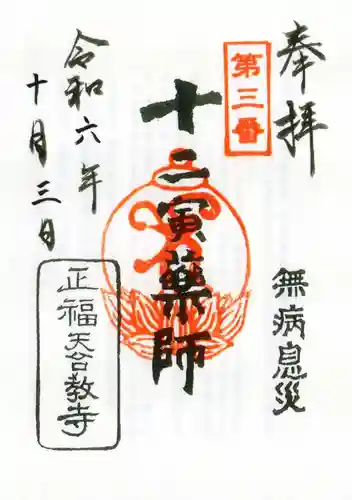 奉拝
無病息災
第三番
十二寅薬師
令和六年
十月三日
正福天台教寺